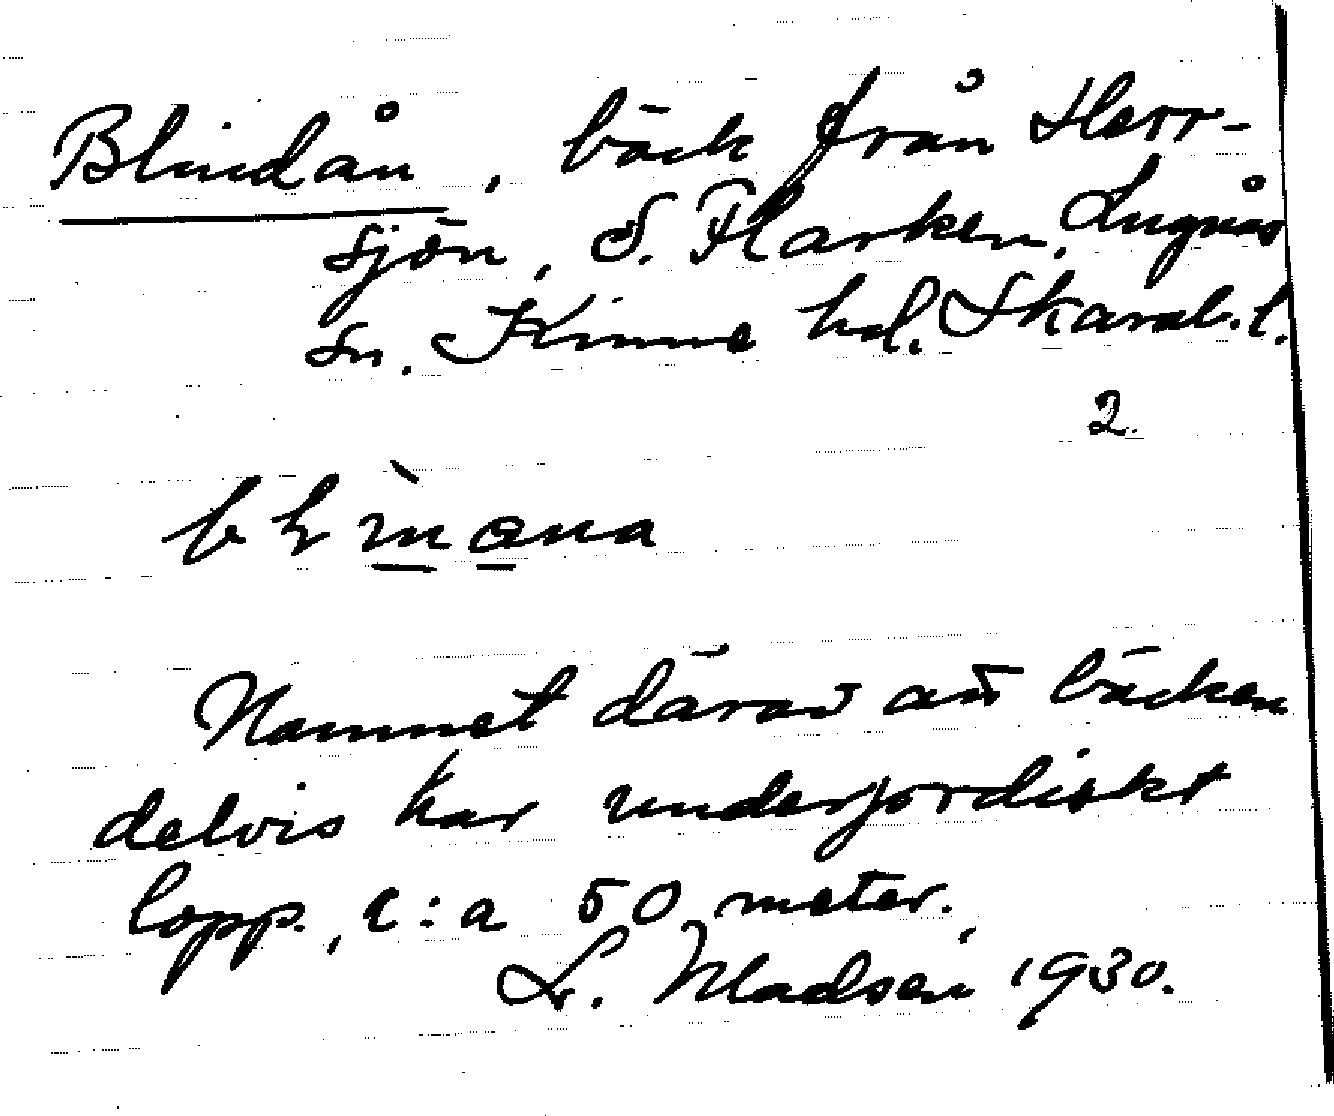 Blindån, bäck från Herr-
sjön, S. Flarken, Lugnås
sn. Kinne hd. Skarab. l.
2.
Namnet därav att bäcken
delvis har underjordiskt
lopp., c:a 50 meter.
L. Madsen 1930.